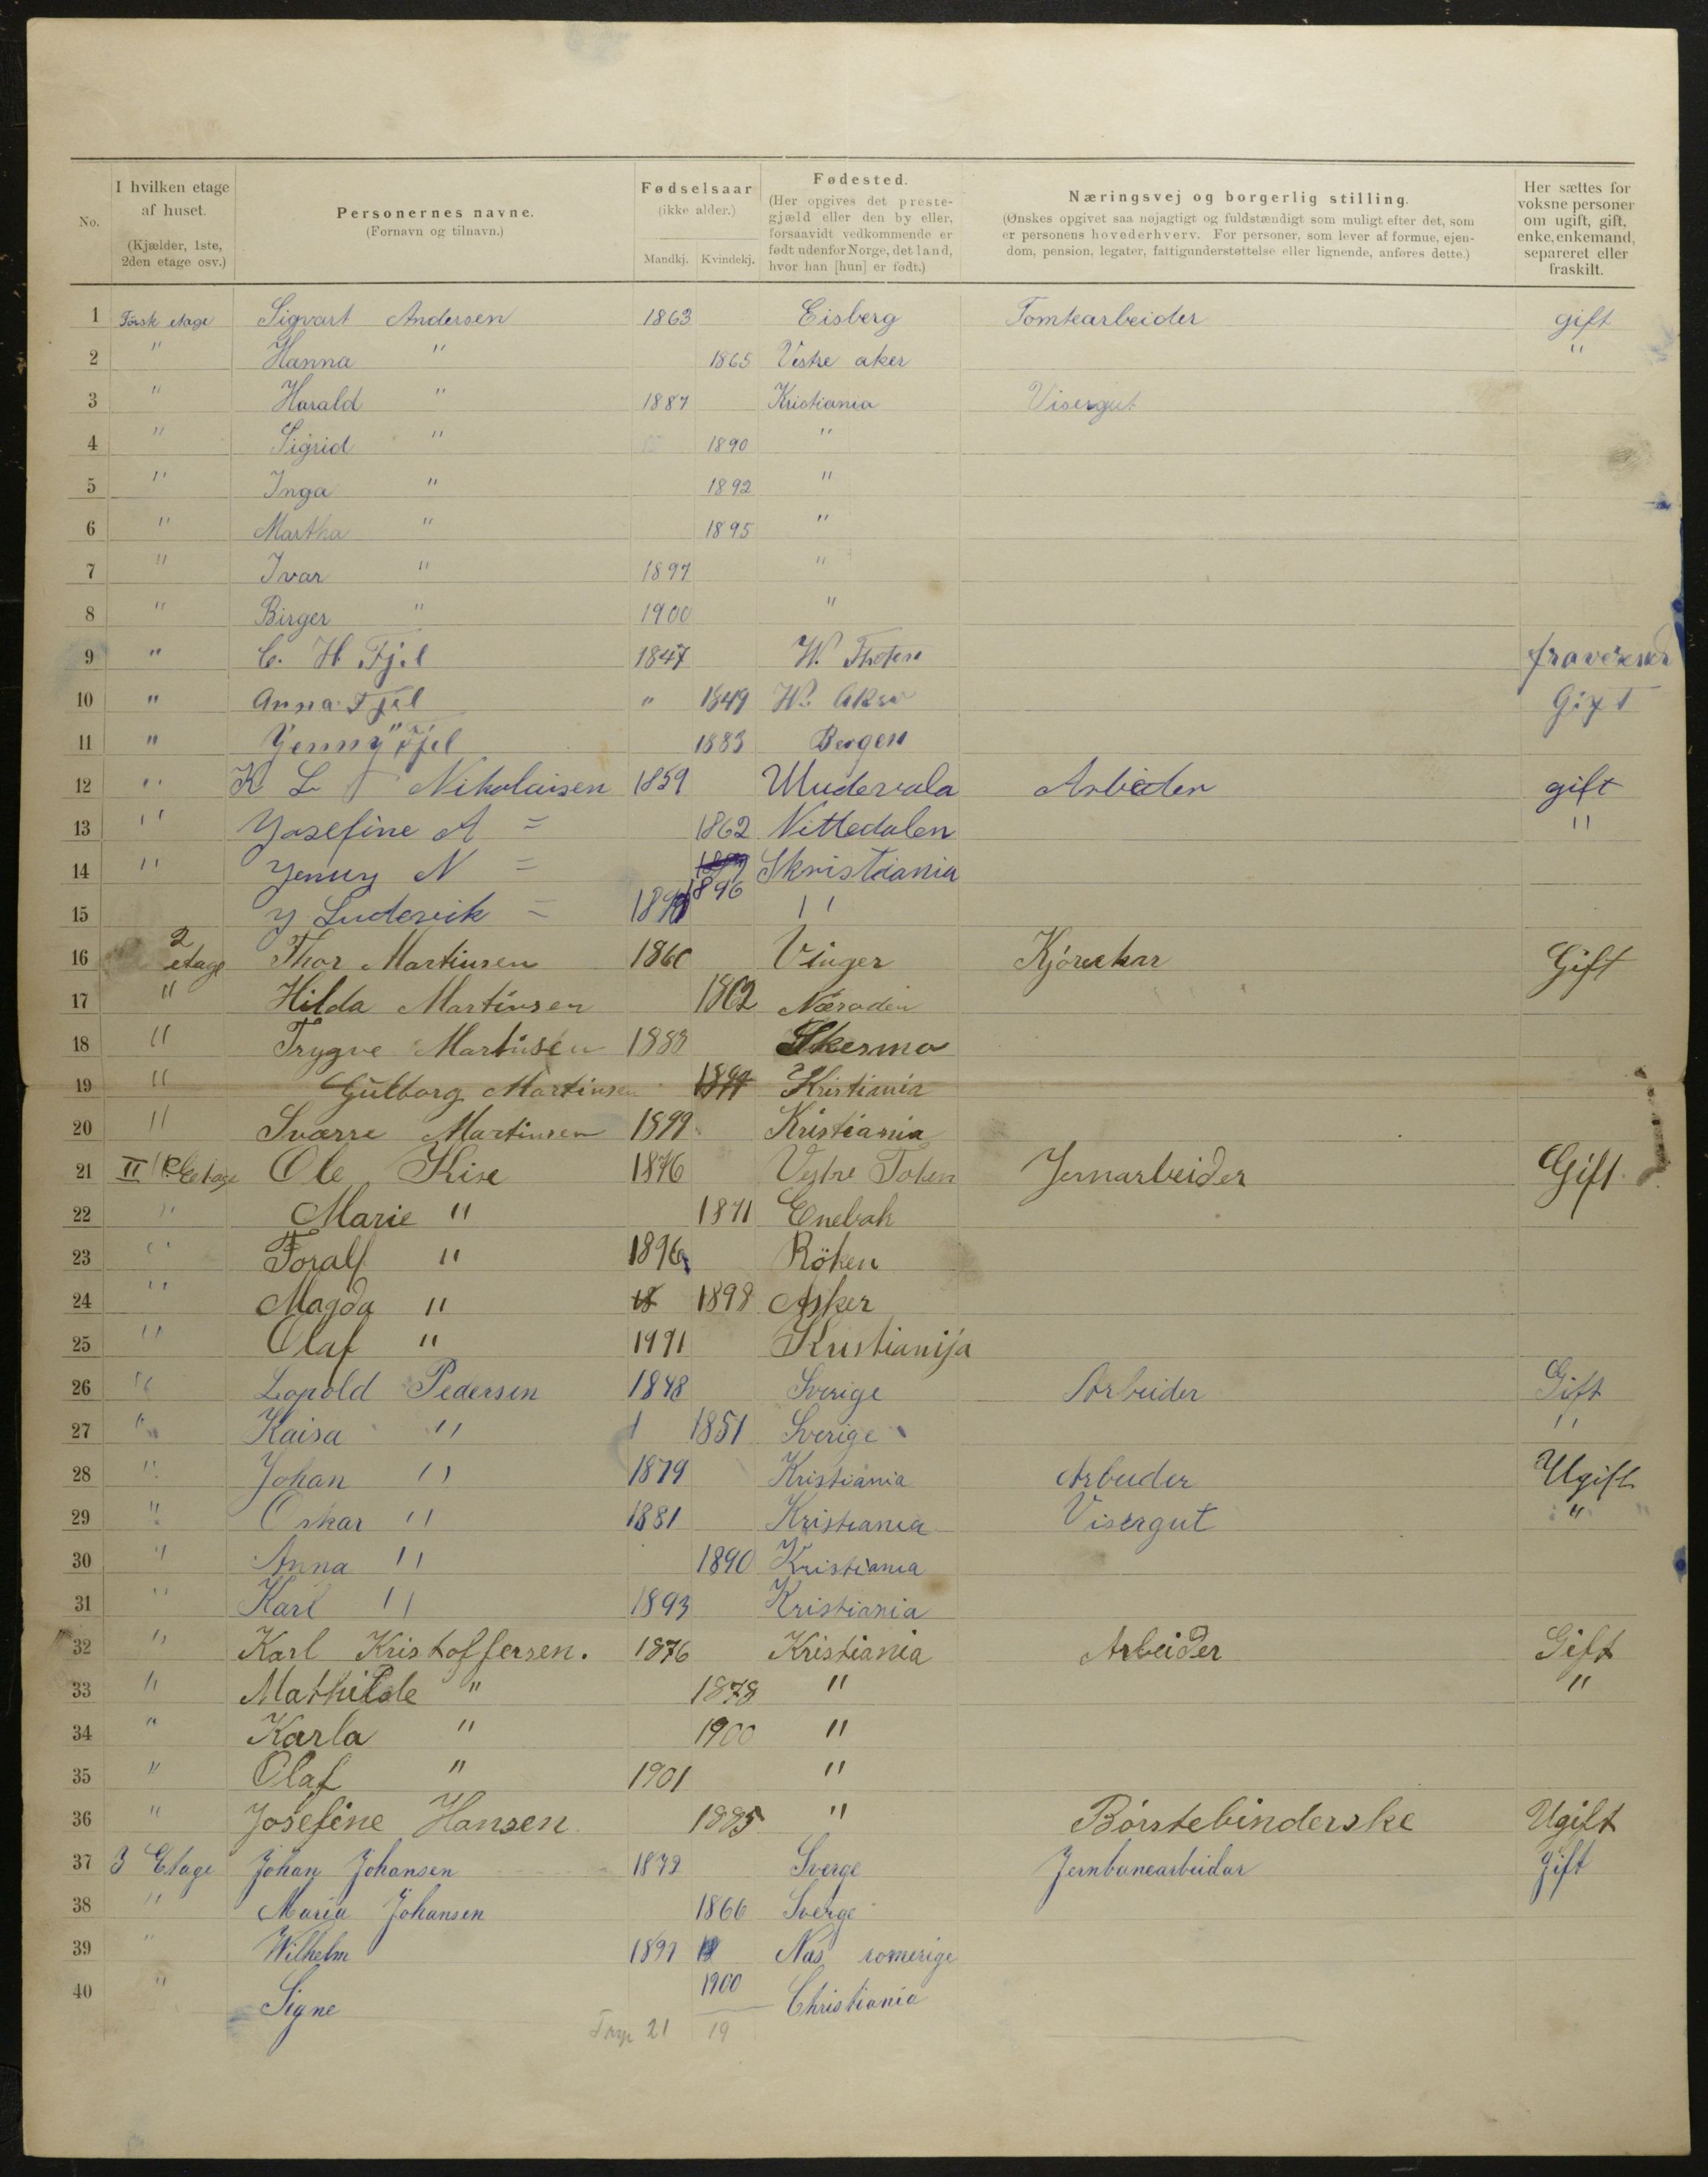 No. I hvilken etage af huset. (Kjælder, 1ste, 2den etage osv.) Personernes navne. (Fornavn og tilnavn.) Fødselsaar (ikke alder.) Mandkj. Kvindekj. Fødested. (Her opgives det prestegjæld eller den by eller, forsaavidt vedkommende er født udenfor Norge, det land, hvor han [hun] er født.) Næringsvej og borgerlig stilling. (Ønskes opgivet saa nøjagtigt og fuldstændigt som muligt efter det, som er personens hovederhverv. For personer, som lever af formue, ejendom, pension, legater, fattigunderstøttelse eller lignende, anføres dette.) Her sættes for voksne personer om ugift, gift, enke, enkemand, separeret eller fraskilt.
1 Førsk etage Sigvart Andersen 1863 Eisberg Tomtearbeider gift
2 " Hanna " 1865 Vestre aker "
3 " Harald " 1887 Kristiania Visergut
4 " Sigrid " 1890 "
5 " Inga " 1892 "
6 " Martha " 1895 "
7 " Ivar " 1897 "
8 " Birger " 1900 "
9 " C. H. Fjel 1847 W. Thoten fraverend
10 " Anna Fjel " 1849 W. Aker Gift
11 " Yenny Fjel 1883 Bergen
12 " K L Nikolaisen 1859 Uudervala Arbeider gift
13 " Yosefine A = 1862 Nittedalen "
14 " Yenny N = 1896 Skristiania
15 Y Ludervik = "
16 2 etage Thor Martinsen 1860 Vinger Kjørekar Gift
17 " Hilda Martinsen 1862 Næroden
18 " Trygve Martinsen 1888 Skesmo
19 " Gulborg Martinsen Kristiania
20 " Sværre Martinsen 1899 Kristiania
21 II etage Ole Kise 1876 Vestre Toten Jernarbeider Gift
22 " Marie " 1871 Enebak
23 " Toralf " 1896 Röken
24 " Magda " 18 1898 Asker
25 " Olaf " 1991 Kristianija
26 " Lopold Pedersen 1848 Sverige Arbeider Gift
27 " Kaisa " 1 1851 Sverige "
28 " Johan " 1879 Kristiania Arbeider Ugift
29 " Oskar " 1881 Kristiania Visergut "
30 " Anna " 1890 Kristiania
31 " Karl " 1893 Kristiania
32 " Karl Kristoffersen. 1876 Kristiania Arbeider Gift
33 " Mathilde " 1878 " "
34 " Karla " 1900 "
35 " Olaf " 1901 "
36 " Josefine Hansen 1885 " Børstebinderske Ugift
37 3 Etage Johan Johansen 1872 Sverge Jernbanearbeidar gift
38 " Maria Johansen 1866 Sverge
39 " Wilhelm 1897 Nas romerige
40 " Signe 1900 Christiania
21 19